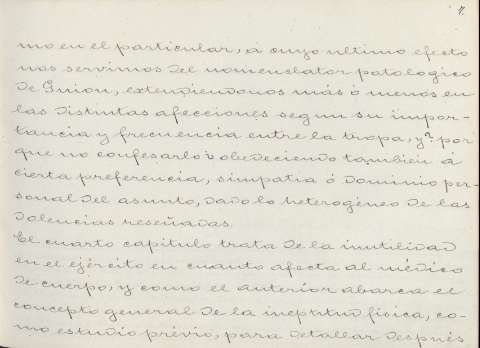 7.
mo en el particular, á cuyo ultimo efecto
nos servimos del nomenclator patologico
de Guion, extendiendonos más ó menos en
las distintas afecciones segun su impor-
tancia y frecuencia entre la tropa, y ? por
que no confesarlo? obedeciendo tambien a
cierta preferencia, simpatia ó dominio per-
sonal del asunto, dado lo heterogéneo de las
dolencias reseñadas.
El cuarto capitulo trata de la inutilidad
en el ejército en cuanto afecta al médico
de cuerpo, y como el anterior abarca el
concepto general de la ineptitud fisica, co-
mo estudio prévio, para detallar después